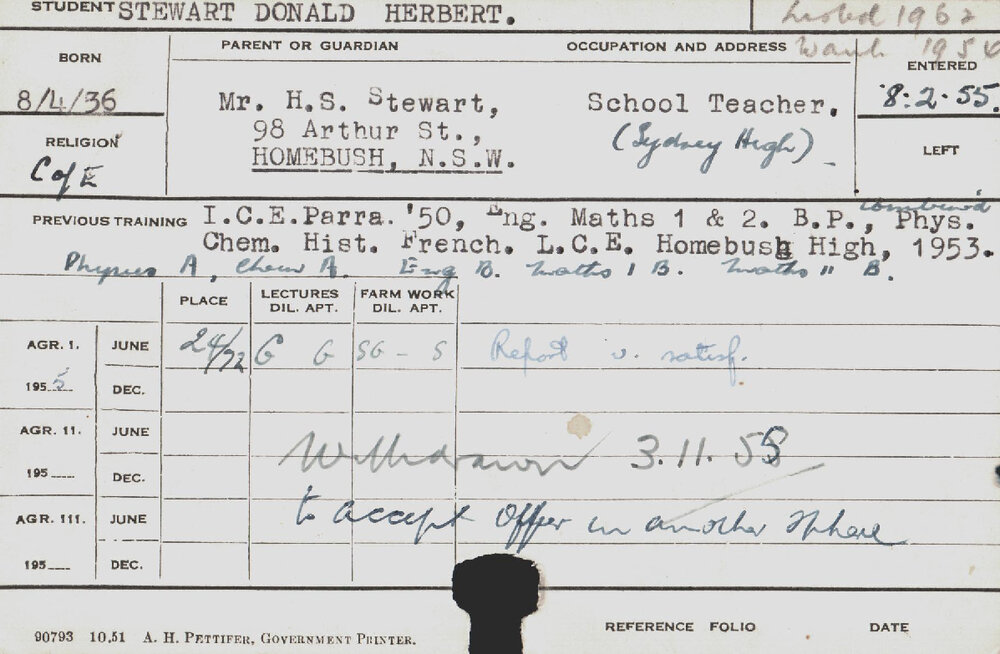 STUDENT STEWART DONALD HERBERT. 1962
BORN PARENT OR GUARDIAN OCCUPATION AND ADDRESS ENTERED
8/4/36 Mr. H.S. Stewart, School Teacher. 8.2.55.
98 Arthur St., (Sydney High)
RELIGION HOMEBUSH, N.S.W. LEFT
C of E
combined
PREVIOUS TRAINING I.C.E.Parra. '50, Eng. Maths 1 & 2. B.P., Phys.
Chem. Hist. French. L.C.E. Homebush High, 1953.
Physics A, Chem A. Eng B. Maths 1 B. Maths 11 B.
PLACE LECTURES FARM WORK
DIL. APT. DIL. APT.
AGR. 1. JUNE 24/72 G G SG - S Report v. satisf.
1955 DEC.
AGR. 11. JUNE
Withdrawn 3.11.55
195 DEC.
AGR. 111. JUNE to accept offer in another sphere
195 DEC.
REFERENCE FOLIO DATE
90793 10.51 A. H. PETTIFER, GOVERNMENT PRINTER.